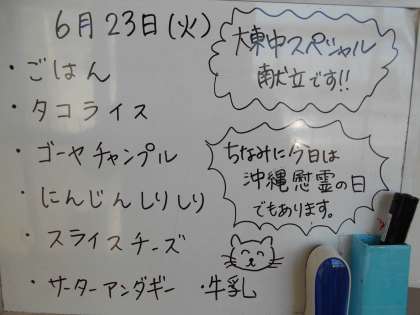 6月23日(火)
・ごはん
・タコライス
・ゴーヤチャンプル
・にんじんしりしり
・スライスチーズ
・サーターアンダギー ・牛乳
大東中スペシャル
献立です!!
ちなみに今日は
沖縄慰霊の日
でもあります。